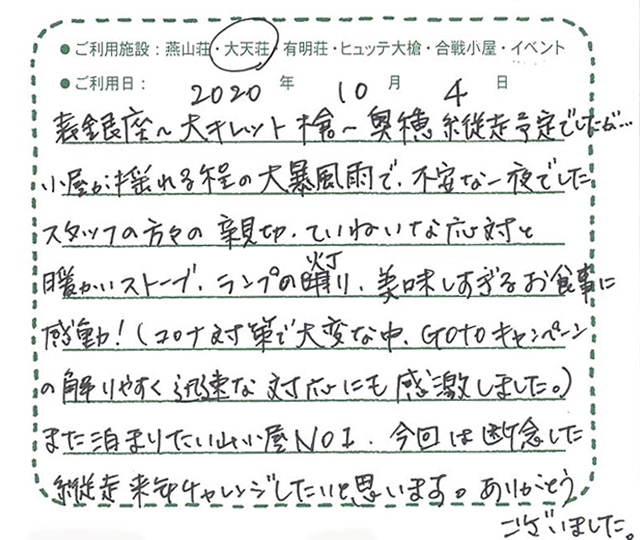 ●ご利用施設：燕山荘・大天荘・有明荘・ヒュッテ大槍・合戦小屋・イベント
●ご利用日： 2020 年 10 月 4 日
表銀座～大キレット 槍～奥穂 縦走予定でしたが…
小屋が揺れる程の大暴風雨で、不安な一夜でした
スタッフの方々の親切、ていねいな応対と
暖かいストーブ、ランプの灯り、美味しすぎるお食事に
感動！（コロナ対策で大変な中、GOTOキャンペーン
の解りやすく迅速な対応にも感激しました。）
また泊まりたい山小屋NO1、今回は断念した
縦走来年チャレンジしたいと思います。ありがとう
ございました。